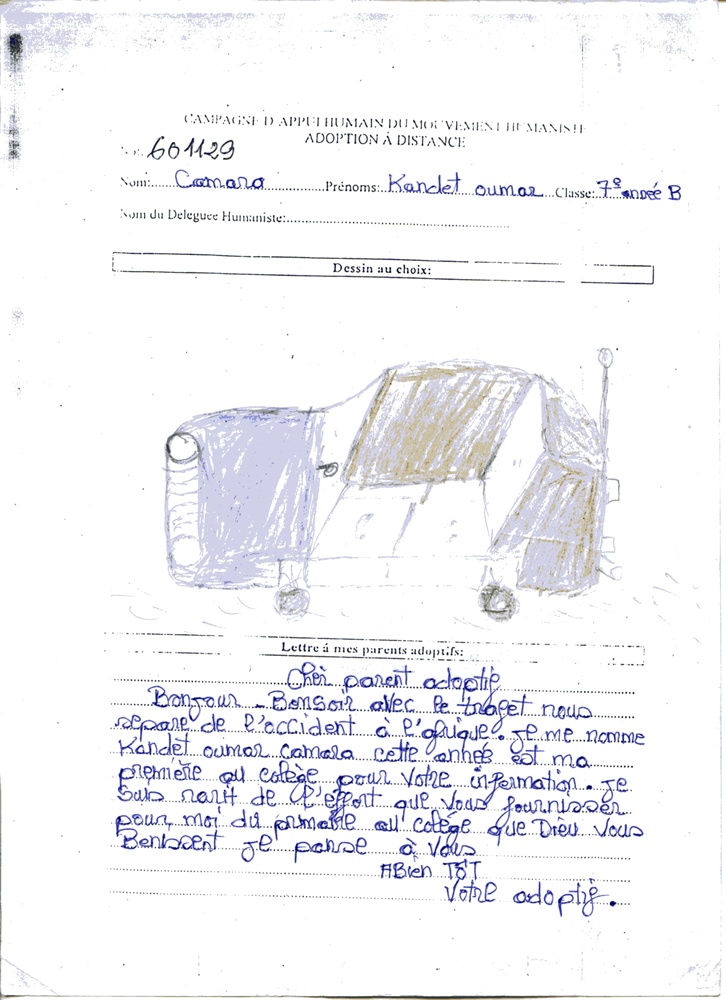 CAMPAGNE D'APPUI HUMAIN DU MOUVEMENT HUMANISTE
ADOPTION À DISTANCE
601129
Nom: Camara Prénoms: Kandet oumar Classe: 7e année B
Nom du Deleguee Humaniste:
Dessin au choix:
Lettre á mes parents adoptifs:
Cher parent adoptif
Bonjour - Bonsoir avec le traget nous
separe de l'occident à l'afrique. je me nomme
Kandet oumar camara cette année est ma
première au colège pour votre information. je
suis de l'effort que vous fournisser
pour moi du primaire au colège que Dieu vous
Benissent je panse à vous
ABien TôT
Votre adoptif.